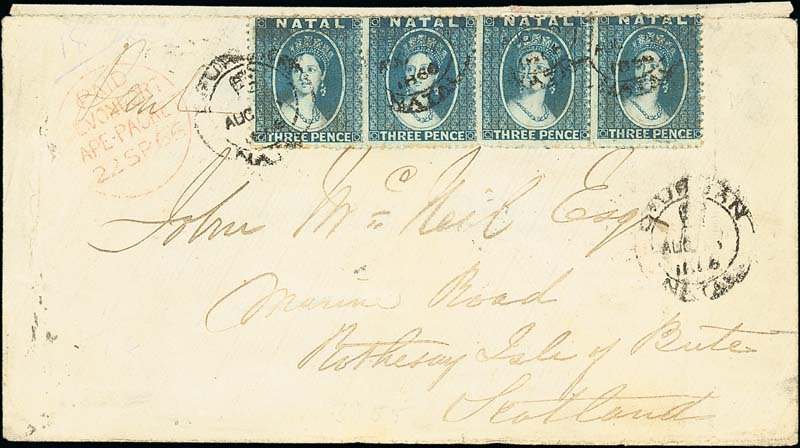 NATAL NATAL NATAL NATAL
THREE PENCE THREE PENCE THREE PENCE THREE PENCE
PAID
DEVONPORT
APE-PACKE
22 SP 66
AUG
1866
NATAL
John McNeil Esqr
Marine Road
Rothesay Isle of Bute
Scotland
DURBAN
AUG
1866
NATAL